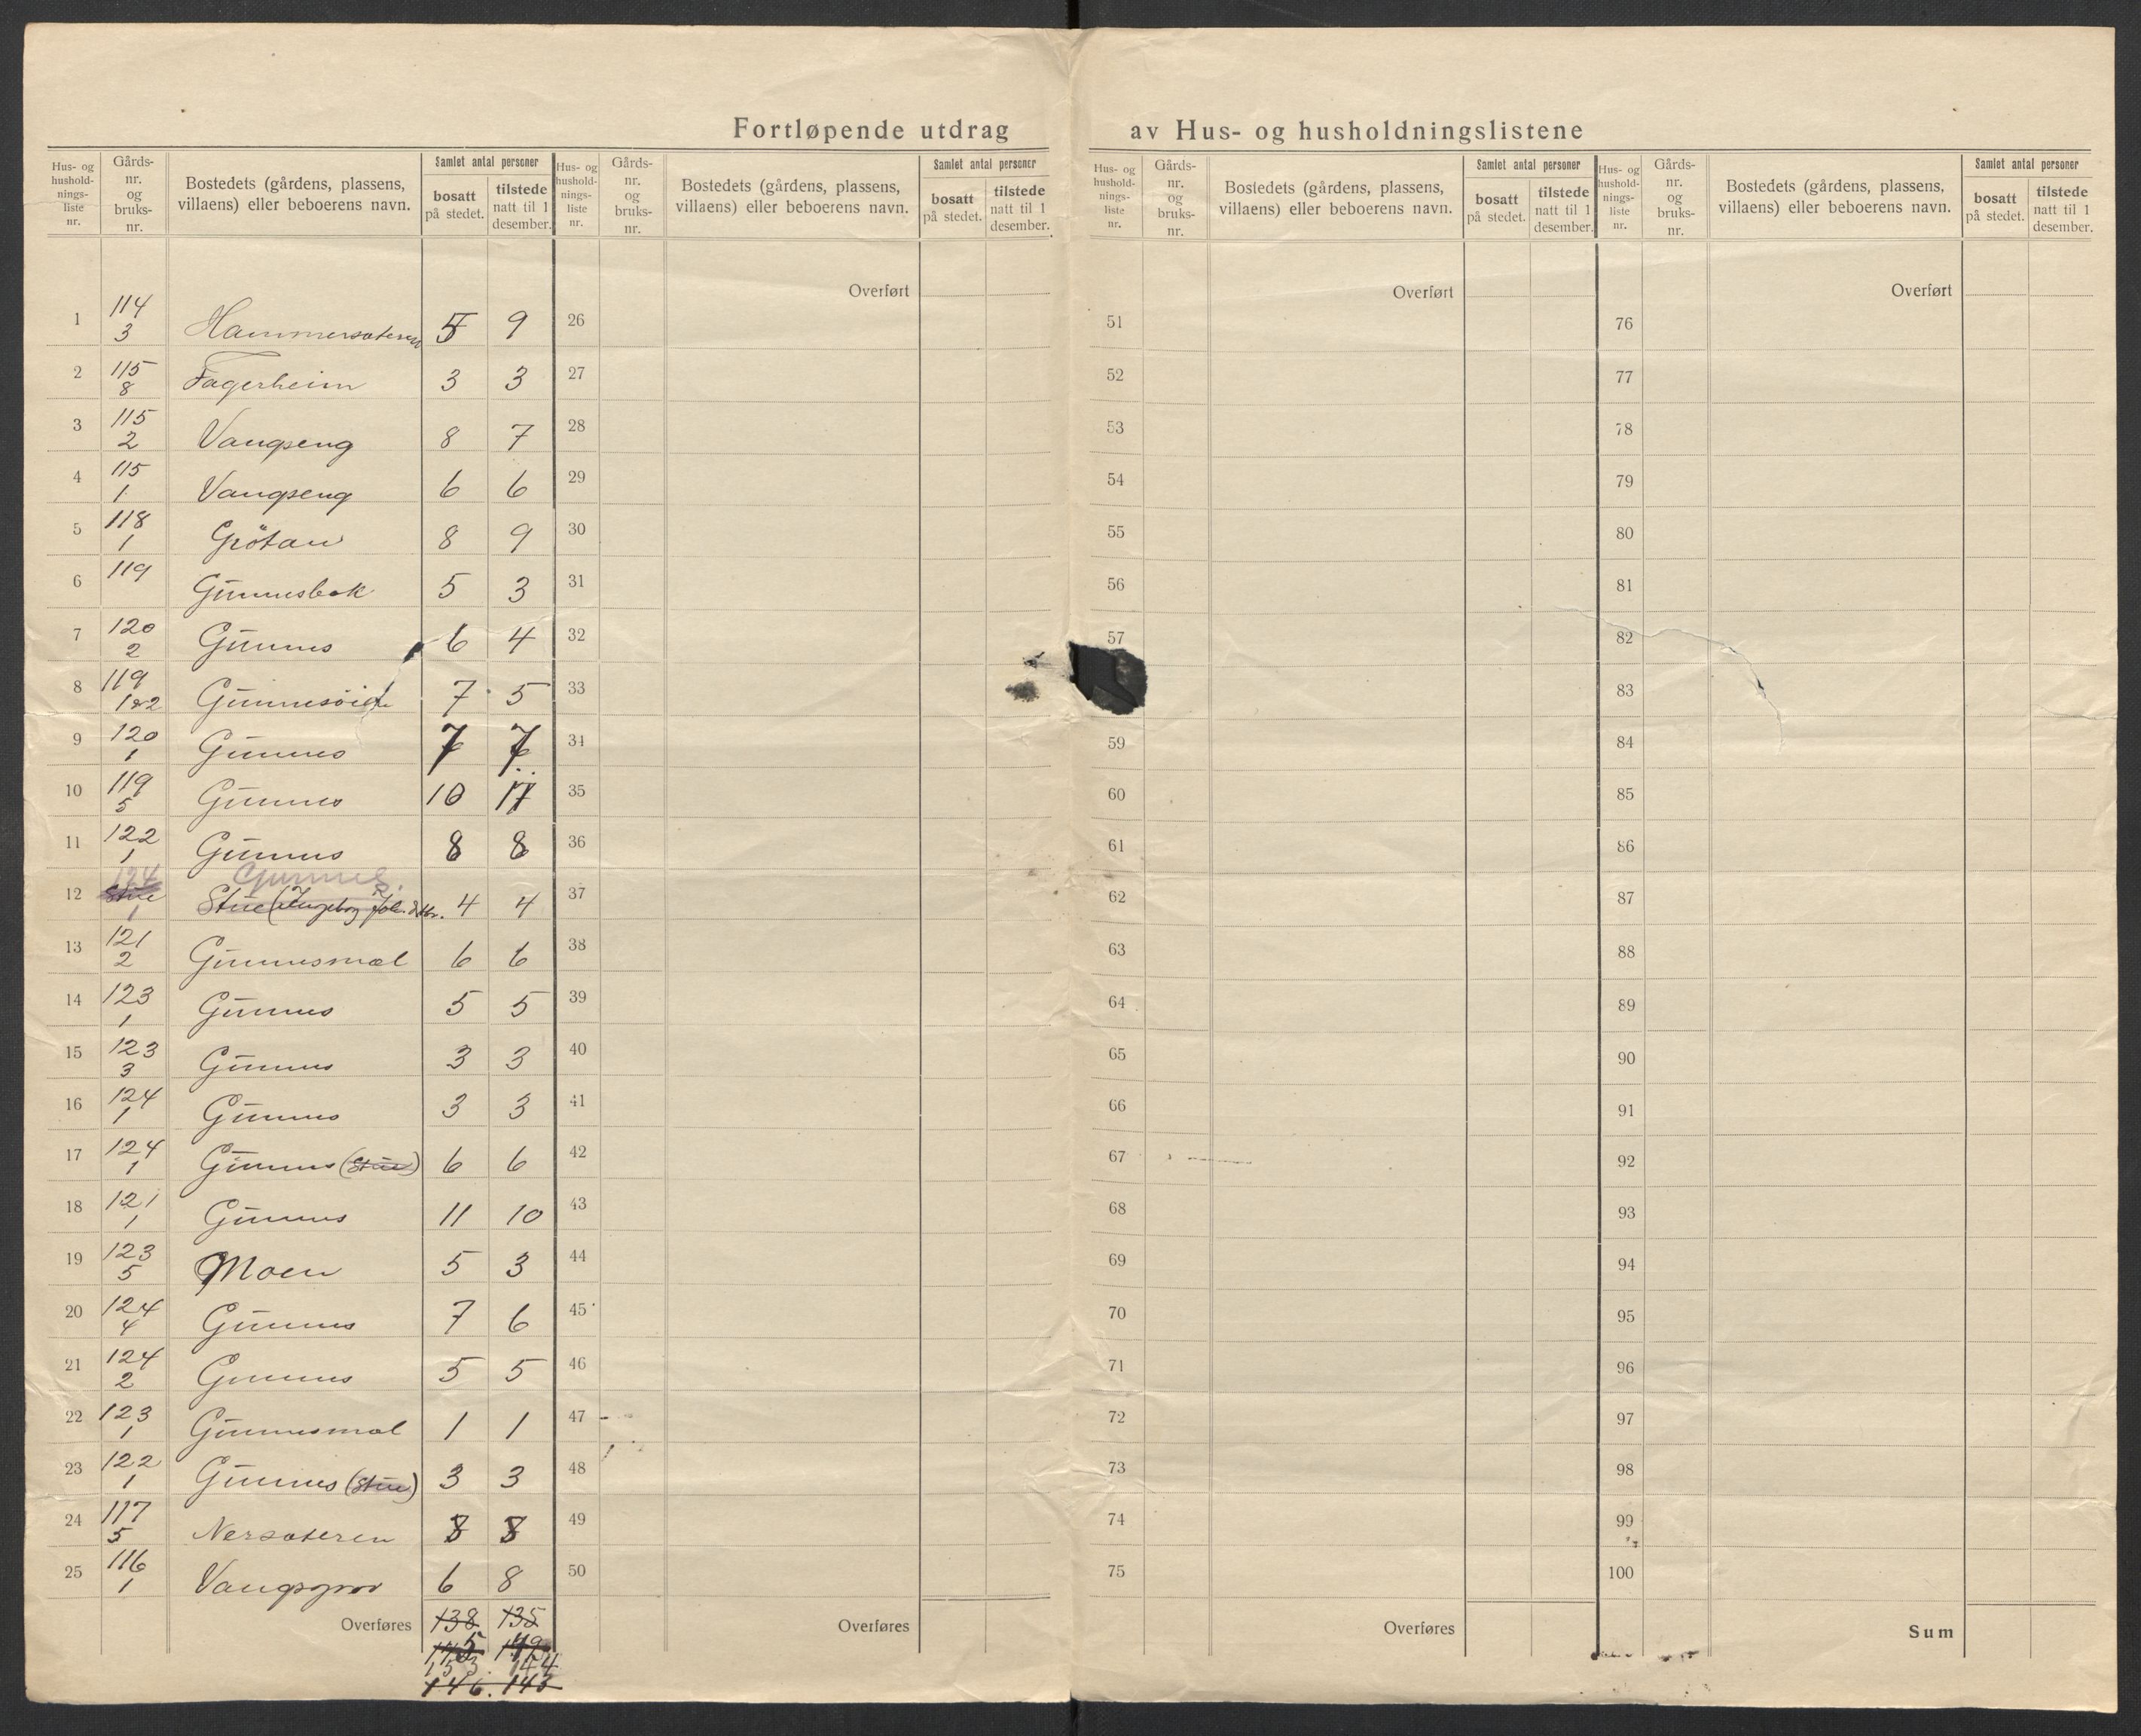 Fortløpende utdrag av Hus- og husholdningslistene
Hus- og hushold-nings-liste nr. Gårds-nr. og bruks-nr. Bostedets (gårdens, plassens, villaens) eller beboerens navn. Samlet antal personer bosatt på stedet. tilstede natt til 1 desember.
1 114 3 Hammersæteren 5 9
2 115 8 Fagerheim 3 3
3 115 2 Vangseng 8 7
4 115 1 Vangseng 6 6
5 118 1 Grötan 8 9
6 119 Gunnesbak 5 3
7 120 2 Gunnes 6 4
8 119 1&2 Gunnesöien 7 5
9 120 1 Gunnes 7 7
10 119 5 Gunnes 10 11
11 122 1 Gunnes 8 8
12 124 1 Gunnes Stue 4 4
13 121 2 Gunnesmæl 6 6
14 123 1 Gunnes 5 5
15 123 3 Gunnes 3 3
16 124 1 Gunnes 3 3
17 124 1 Gunnes (Stue) 6 6
18 121 1 Gunnes 11 10
19 123 5 Moen 5 3
20 124 4 Gunnes 7 6
21 124 2 Gunnes 5 5
22 123 1 Gunnesmæl 1 1
23 122 1 Gunnes (Stue) 3 3
24 117 5 Nersæteren 8 8
25 116 1 Vangsgrov 6 8
Overføres 138 135
153 144
146. 143
Hus- og hushold-nings-liste nr. Gårds-nr. og bruks-nr. Bostedets (gårdens, plassens, villaens) eller beboerens navn. Samlet antal personer bosatt på stedet. tilstede natt til 1 desember.
Overført
26
27
28
29
30
31
32
33
34
35
36
37
38
39
40
41
42
43
44
45
46
47
48
49
50
Overføres
Hus- og hushold-nings-liste nr. Gårds-nr. og bruks-nr. Bostedets (gårdens, plassens, villaens) eller beboerens navn. Samlet antal personer bosatt på stedet. tilstede natt til 1 desember.
Overført
51
52
53
54
55
56
57
59
60
61
62
63
64
65
66
67
68
69
70
71
72
73
74
75
Overføres
Hus- og hushold-nings-liste nr. Gårds-nr. og bruks-nr. Bostedets (gårdens, plassens, villaens) eller beboerens navn. Samlet antal personer bosatt på stedet. tilstede natt til 1 desember.
Overført
76
77
78
79
80
81
82
83
84
85
86
87
88
89
90
91
92
93
94
95
96
97
98
99
100
Sum